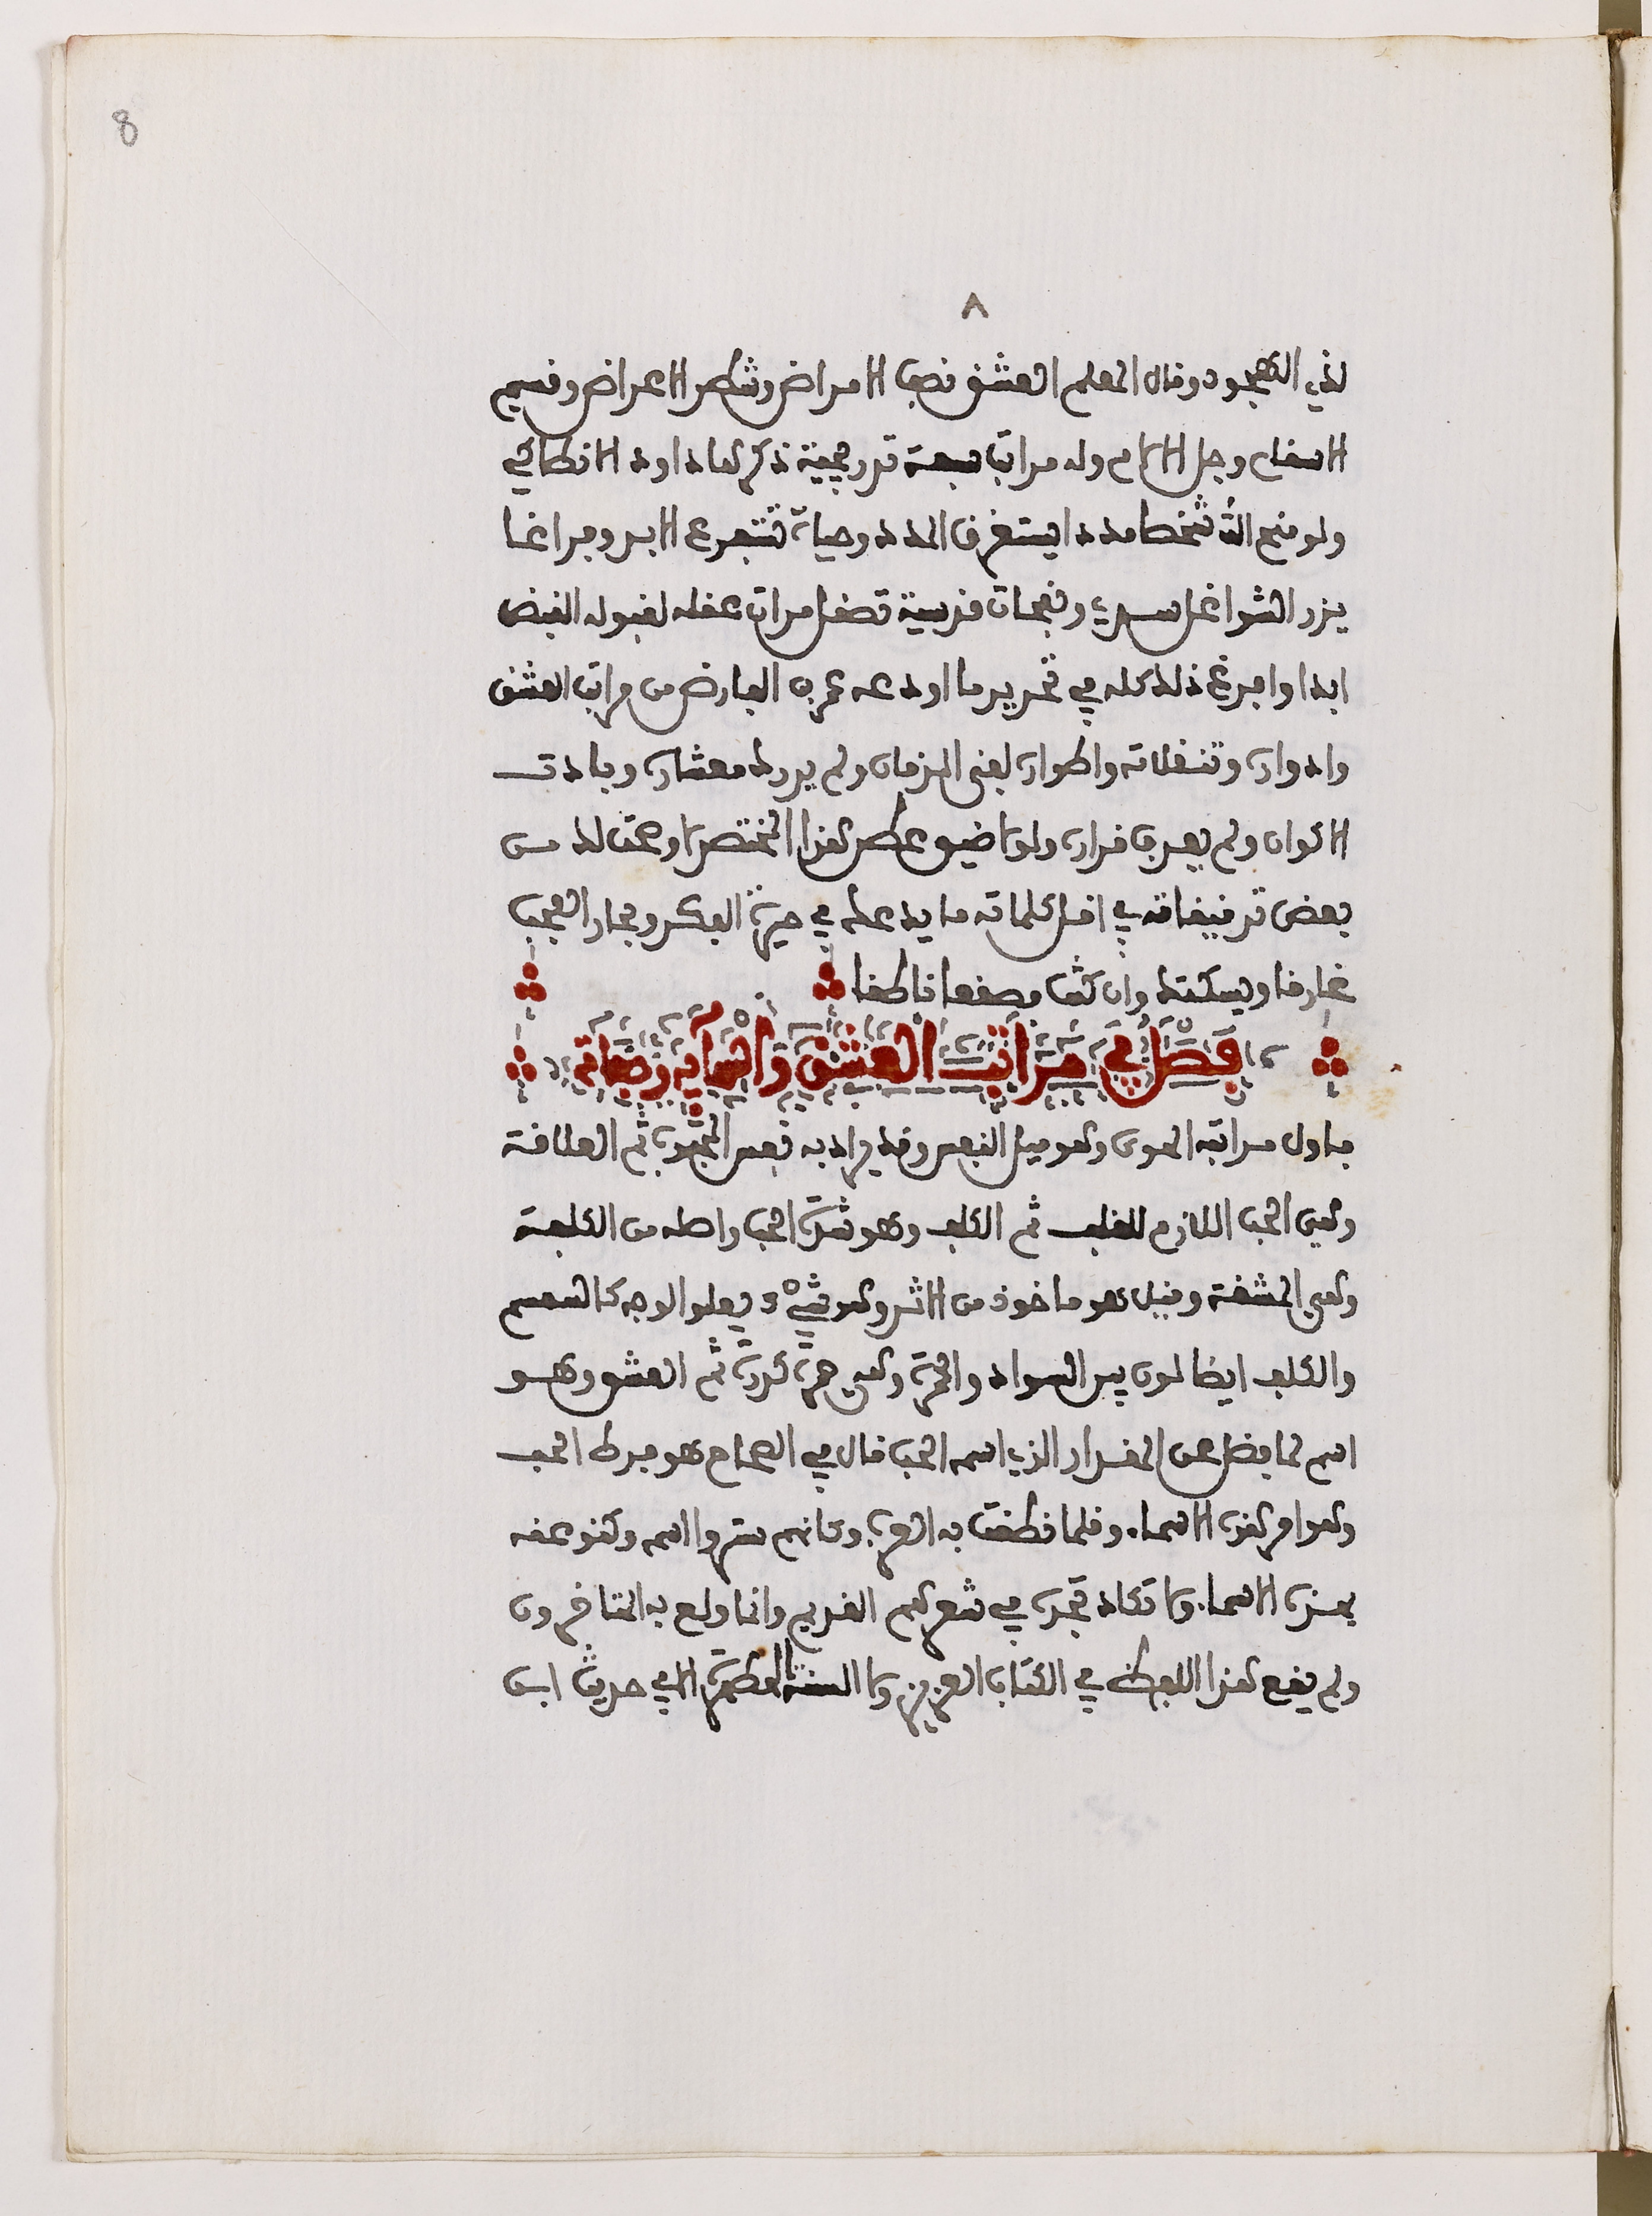 8
٨
لذي الهجود وقال المعلم العشق نصب الامراض وشطر الاعراض وقسيم
الاسقام وجل الالام وله مراتب سبعة تدريجية ذكرها داود الانطاكي
ولو منح الله شخصا مددا يستغرق المدد وحياة تنتهي على الابد وفراغا
يرد الشواغل سرمدي ونفحات قدسية تصقل مرات عقله لقبوله الفيض
ابدا وافرغ ذلك كله في تحرير ما اودعه عمر بن الفارض من مراتب العشق
وادواره وتنقلاته واطواره لفني الزمان ولم يردك معشاره وبادت
الاكوان ولم يعرف قراره ولولا ضيق عطن هذا المختصر لاوعت لك من
بعض تدقيقاته في اقل كلماته ما يدعك في حيرة الفكر وبحار العجب
غارقا ويسكتك وان كنت مصقعا ناطقا
فصل في مراتب العشق واسمايه وصفاته
فاول مراتبه الهوى وهو ميل النفس وقد يراد به نفس المحبوب ثم العلاقة
وهي الحب اللازم للقلب ثم الكلف وهو شدة الحب واصله من الكلفة
وهي المشقة وقيل هو ماخوذ من الاثر وهو شيء يعلو الوجه كالسمسم
والكلف ايضا لون بين السواد والحمرة وهي حمرة كدرة ثم العشق وهو
اسم لما فضل عن المقدار الذي اسمه الحب قال في الصحاح هو فرط الحب
وهو امر هذه الاسماء وقلما نطقت به العرب وكانهم ستروا اسمه وكنو عنه
بهذه الاسماء ولا تكاد تجده في شعرهم القديم وانما ولع به المتاخرون
ولم يقع هذا اللفظ في الكتاب العزيز ولا السنة المطهرة الا في حديث ابن